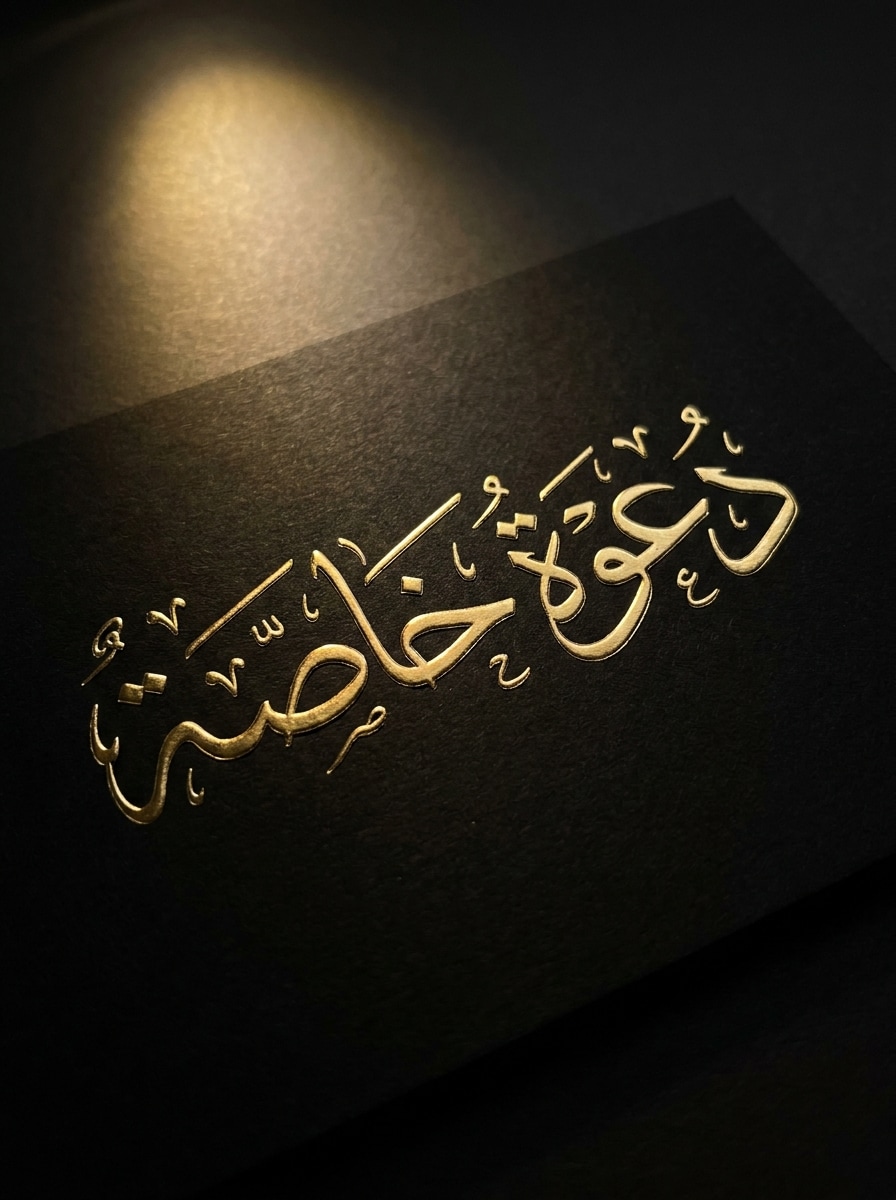 دعوة خاصة